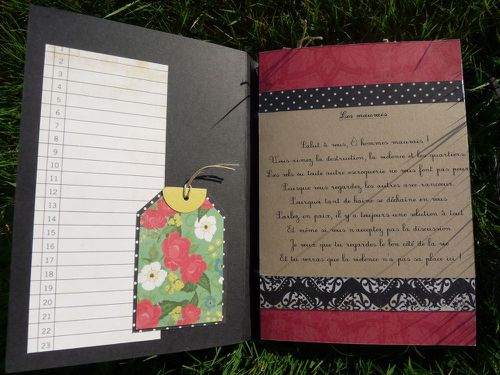 1
2
3
4
5
6
7
8
9
10
11
12
13
14
15
16
17
18
19
20
21
22
23
Les mauvais
Salut à vous, Ô hommes mauvais !
Vous aimez la destruction, la violence et les quartiers.
Les vols ou toute autre escroquerie ne vous font pas peur
Lorsque vous regardez les autres avec rancoeur.
Pourquoi tant de haine se déchaîne en vous
Parlez en paix, il y a toujours une solution à tout
Et même si vous n'acceptez pas la discussion
Je veux que tu regardes le bon côté de la vie
Et tu verras que la violence n'a pas sa place ici !